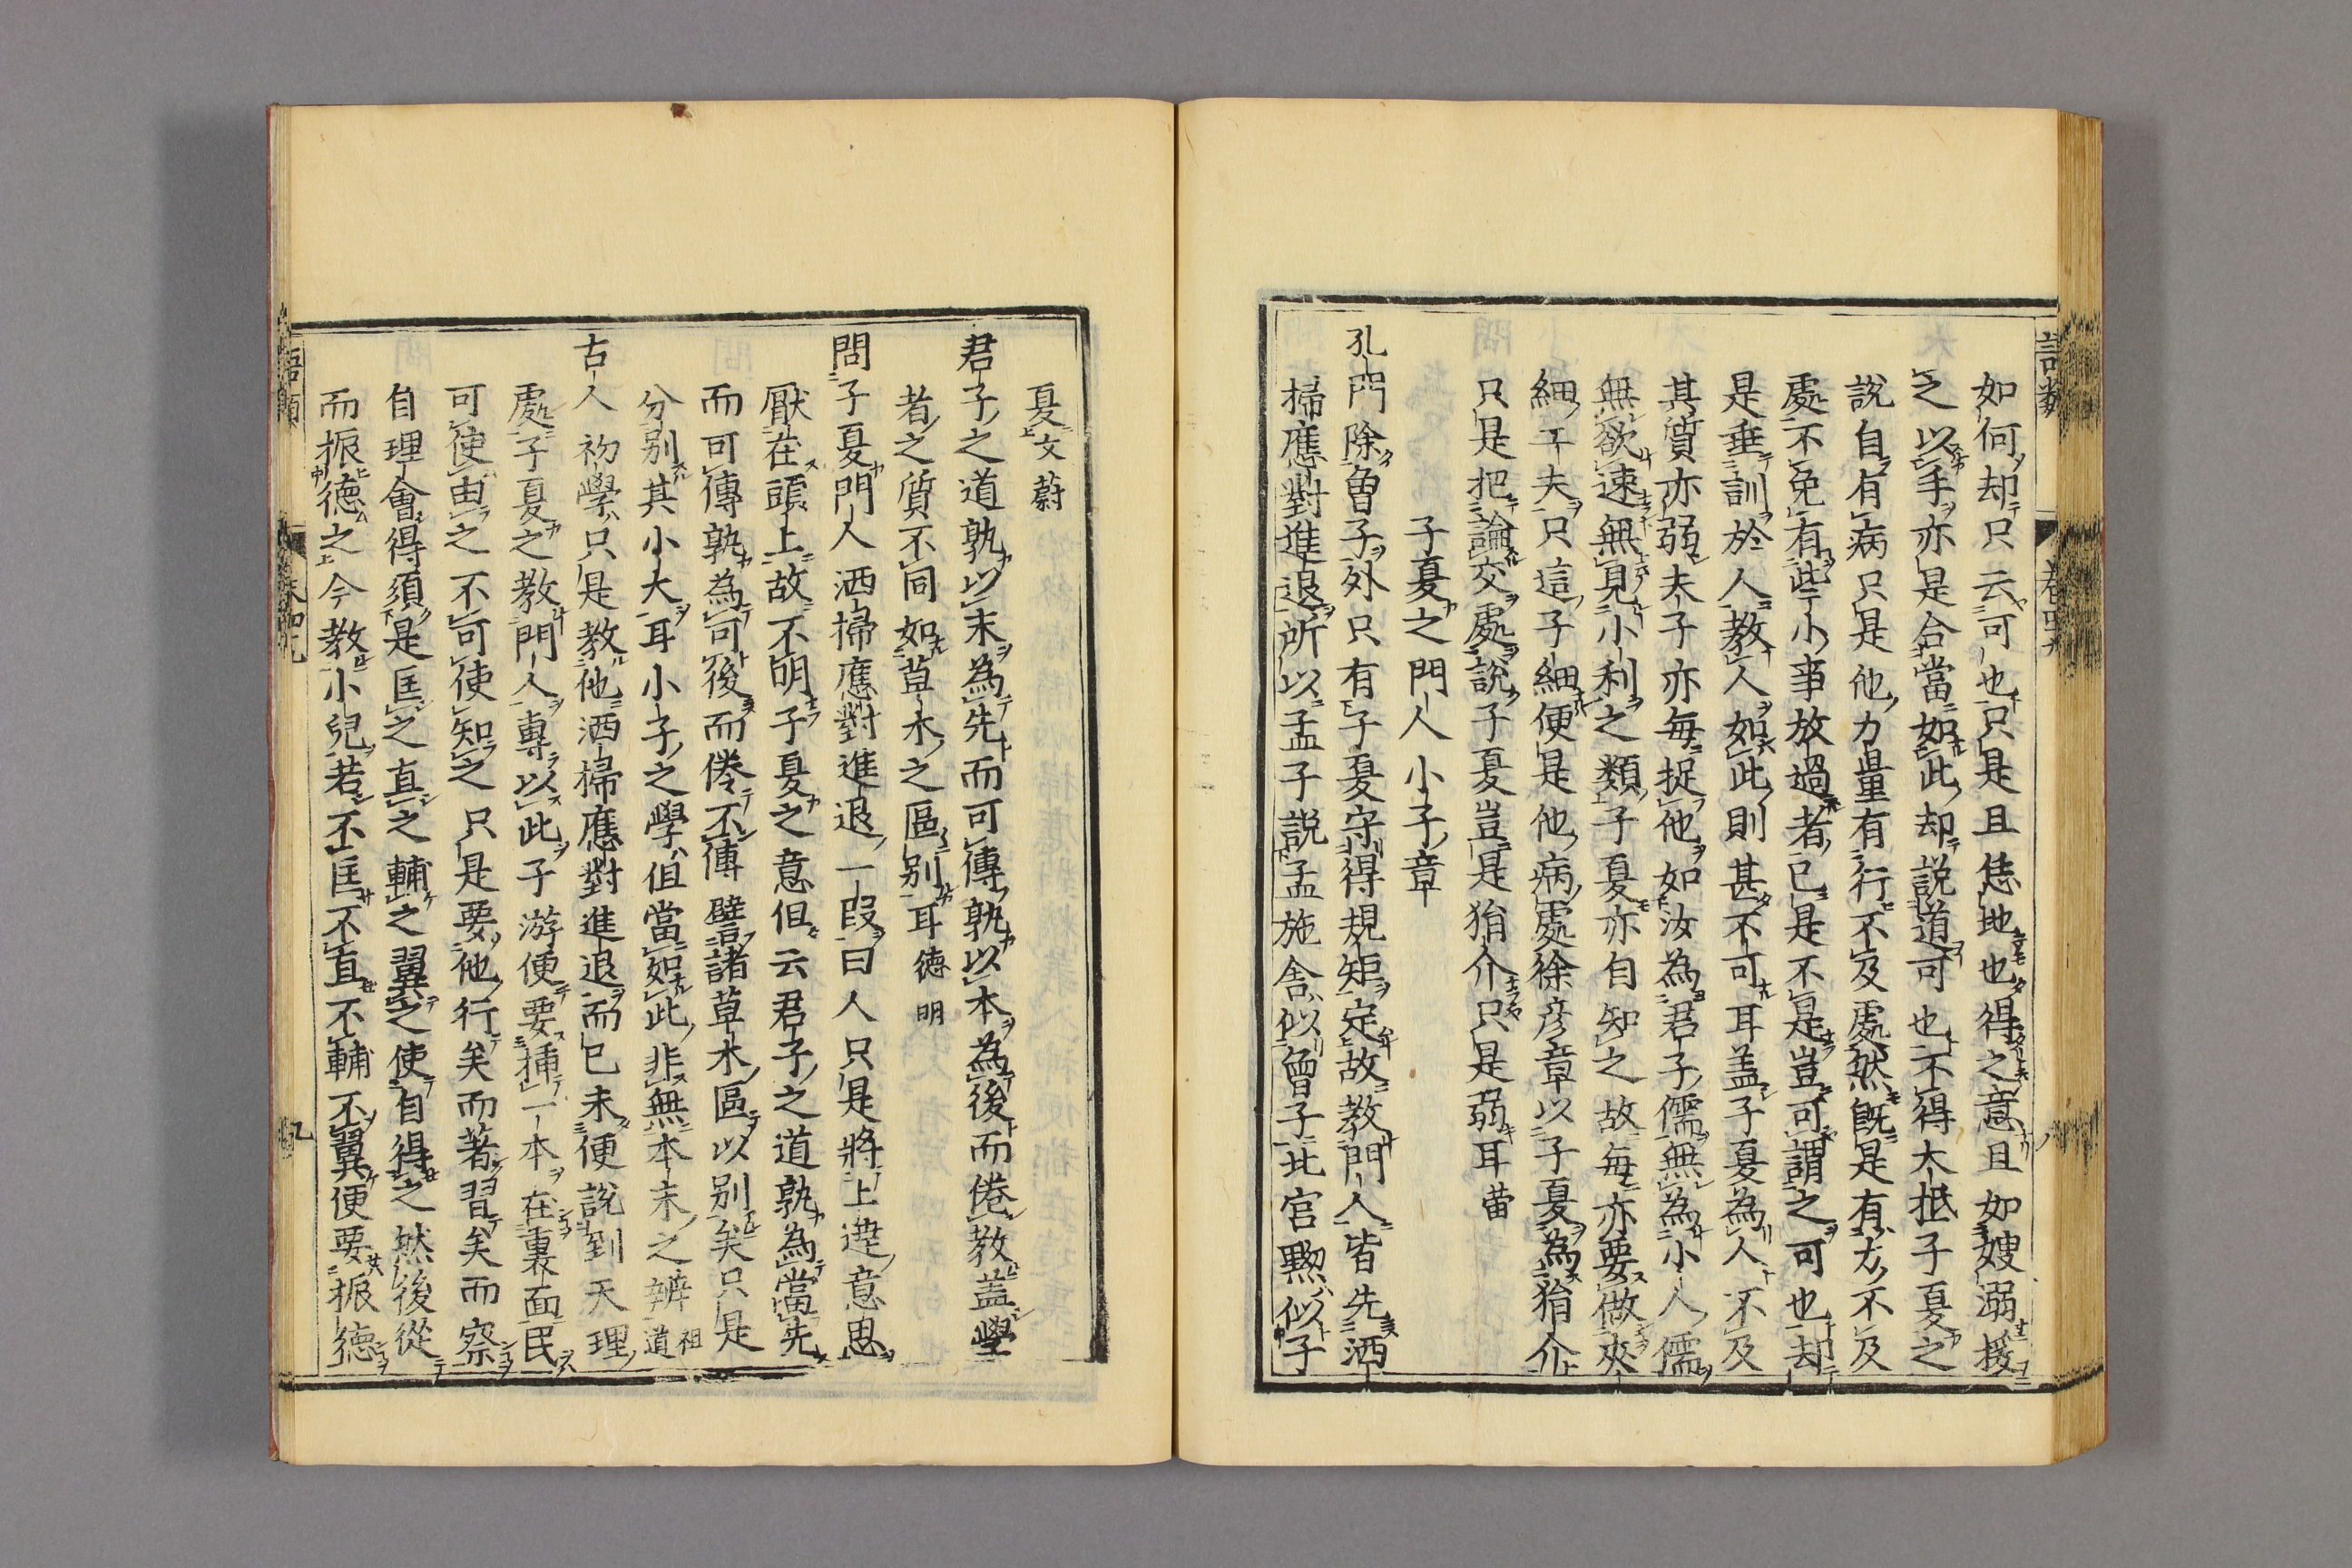 語類
卷四十九
八
如何却只云可也只是且恁地也得之意且如嫂溺援
之以手亦是合當如此却説道可也不得大抵子夏之
説自有病只是他力量有行不及處然既是有力不及
處不免有些小事放過者已是不是豈可謂之可也却
是垂訓於人教人如此則甚不可耳盖子夏為人不及
其質亦弱夫子亦每捉他如汝為君子儒無為小人儒
無欲速無見小利之類子夏亦自知之故每亦要做夾
細工夫只這子細便是他病處徐彦章以子夏為狷介
只是把論交處説子夏豈是狷介只是弱耳㽦
子夏之門人小子章
孔門除曾子外只有子夏守得規矩定故教門人皆先洒
掃應對進退所以孟子説孟施舍似曾子北宫黝似子
夏文蔚
君子之道孰以末為先而可傳孰以本為後而倦教盖學
者之質不同如草木之區别耳德明
問子夏門人洒掃應對進退一段曰人只是將上達意思
厭在頭上故不明子夏之意但云君子之道孰為當先
而可傳孰為可後而倦不傳譬諸草木區以别矣只是
分别其小大耳小子之學但當如此非無本末之辨道祖
古人初學只是教他洒掃應對進退而已未便説到天理
處子夏之教門人專以此子游便要插一本在裏面民
可使由之不可使知之只是要他行矣而著習矣而察
自理會得須是匡之直之輔之翼之使自得之然後從
而振德之今教小兒若不匡不直不輔不翼便要振德
語類
卷四十九
九